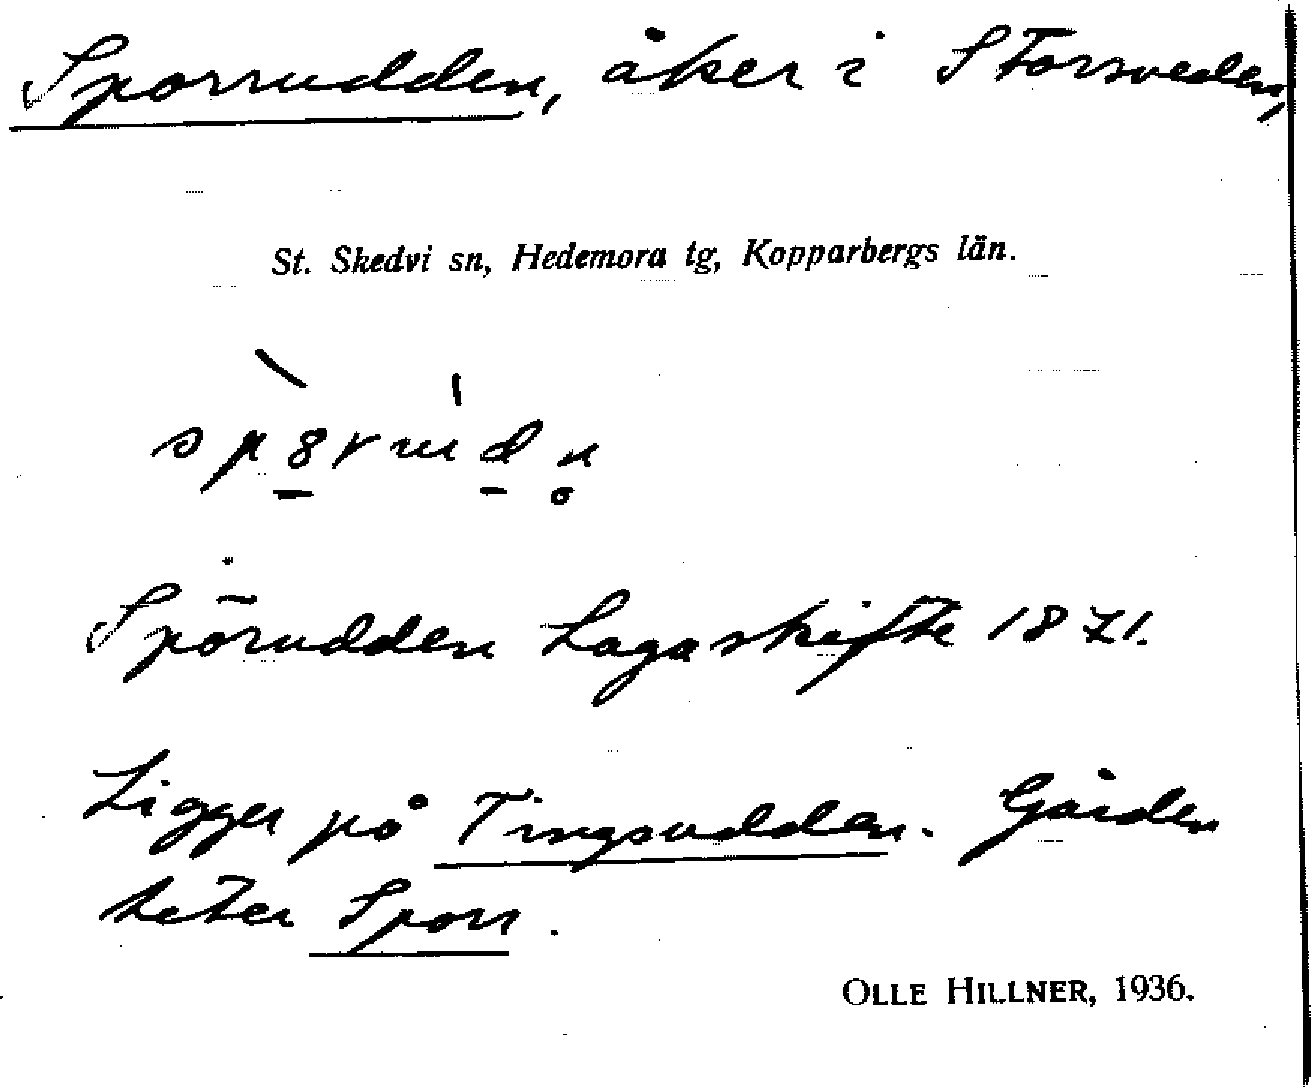 Sporrudden, åker i Storsveden,
St. Skedvi sn, Hedemora tg, Kopparbergs län.
Spörudden Laga skifte 1871.
Ligger på Tingsudden. Gården
heter Sporr.
OLLE HILLNER, 1936.